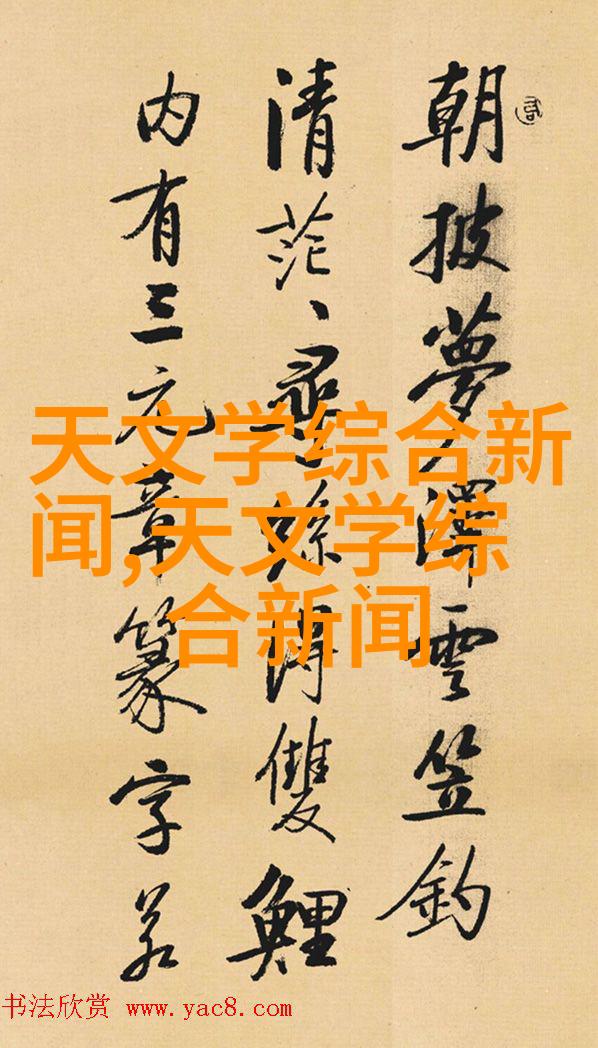 朝披夢澤雲笠釣
清茫、尋絲得雙鯉
内有三元章篆字若
天文学综合新
闻,天文学综
合新闻
书法欣赏 www.yac8.com